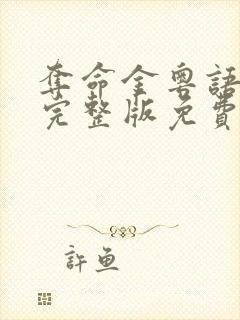 奪命金粵語
完整版免費
許魚